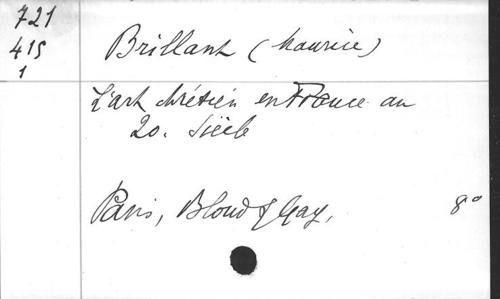 721
415
1
Brillant (Maurice)
L'art chrétien en France au
20. siècle
Paris, Bloud & Gay,
8°